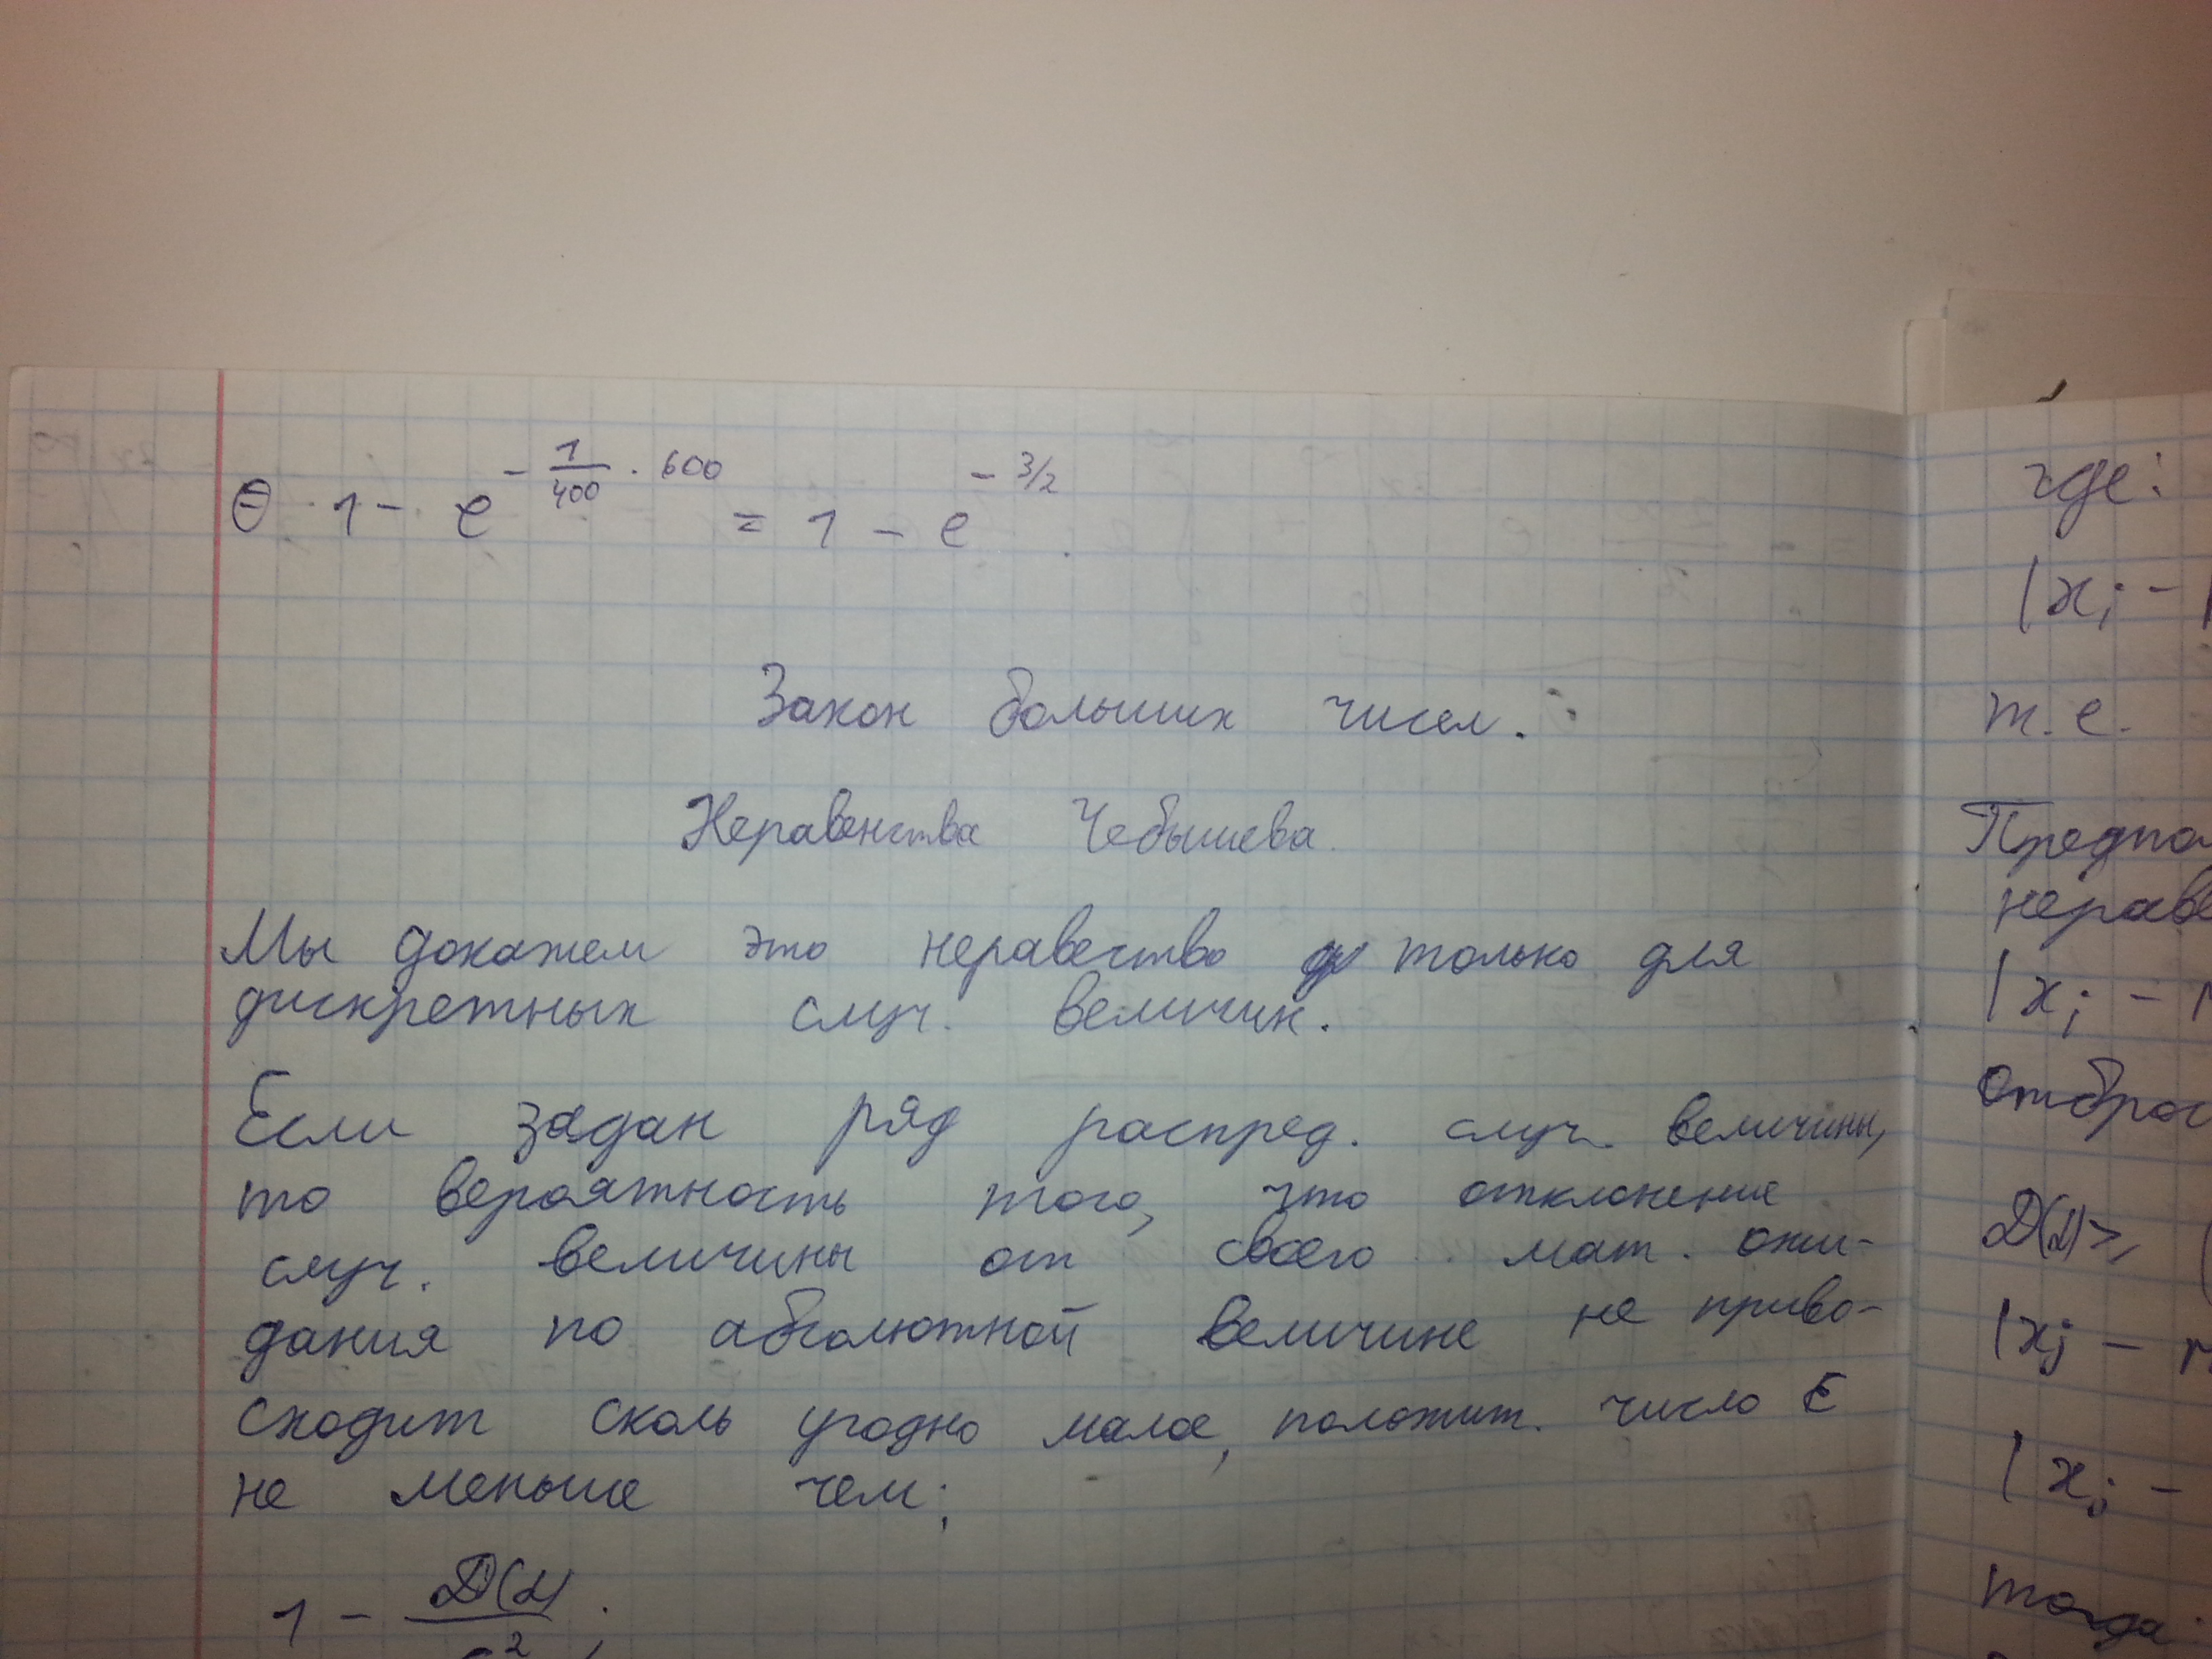 ⊜ 1 - e^{-\frac{1}{400} · 600} = 1 - e^{-3/2}.
Закон больших чисел.
Неравенства Чебышева.
Мы докажем это неравество только для
дискретных случ. величин.
Если задан ряд распред. случ. величины,
то вероятность того, что отклонение
случ. величины от своего мат. ожи-
дания по абсолютной величине не приво-
сходит сколь угодно малое, положит. число ε
не меньше чем:
1 - \frac{D(α)}{ε^2};
где:
|x_j -
т.е.
Предпол
нераве
|x_j -
Отброс
D(α) ≥
|x_j -
|x_j -
тогда: